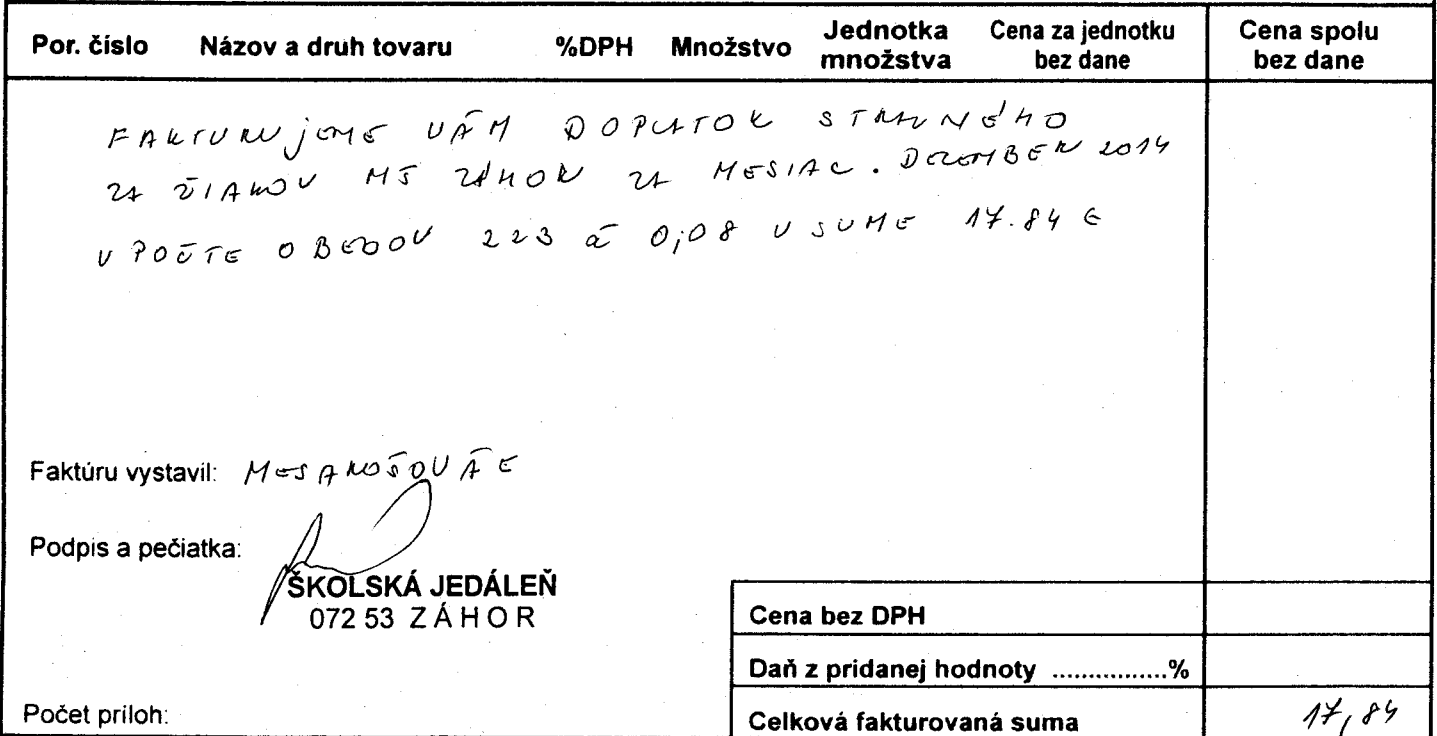 Por. číslo Názov a druh tovaru %DPH Množstvo Jednotka množstva Cena za jednotku bez dane Cena spolu bez dane
FAKTURUJEME VÁM DOPLATOK STRAVNÉHO
ZA ŽIAKOV MŠ ZÁHOR ZA MESIAC. DECEMBER 2014
V POČTE OBEDOV 223 á 0,08 V SUME 17.84 €
Faktúru vystavil:
Podpis a pečiatka:
ŠKOLSKÁ JEDÁLEŇ
072 53 ZÁHOR
Cena bez DPH
Daň z pridanej hodnoty .................%
Počet príloh:
Celková fakturovaná suma 17,84